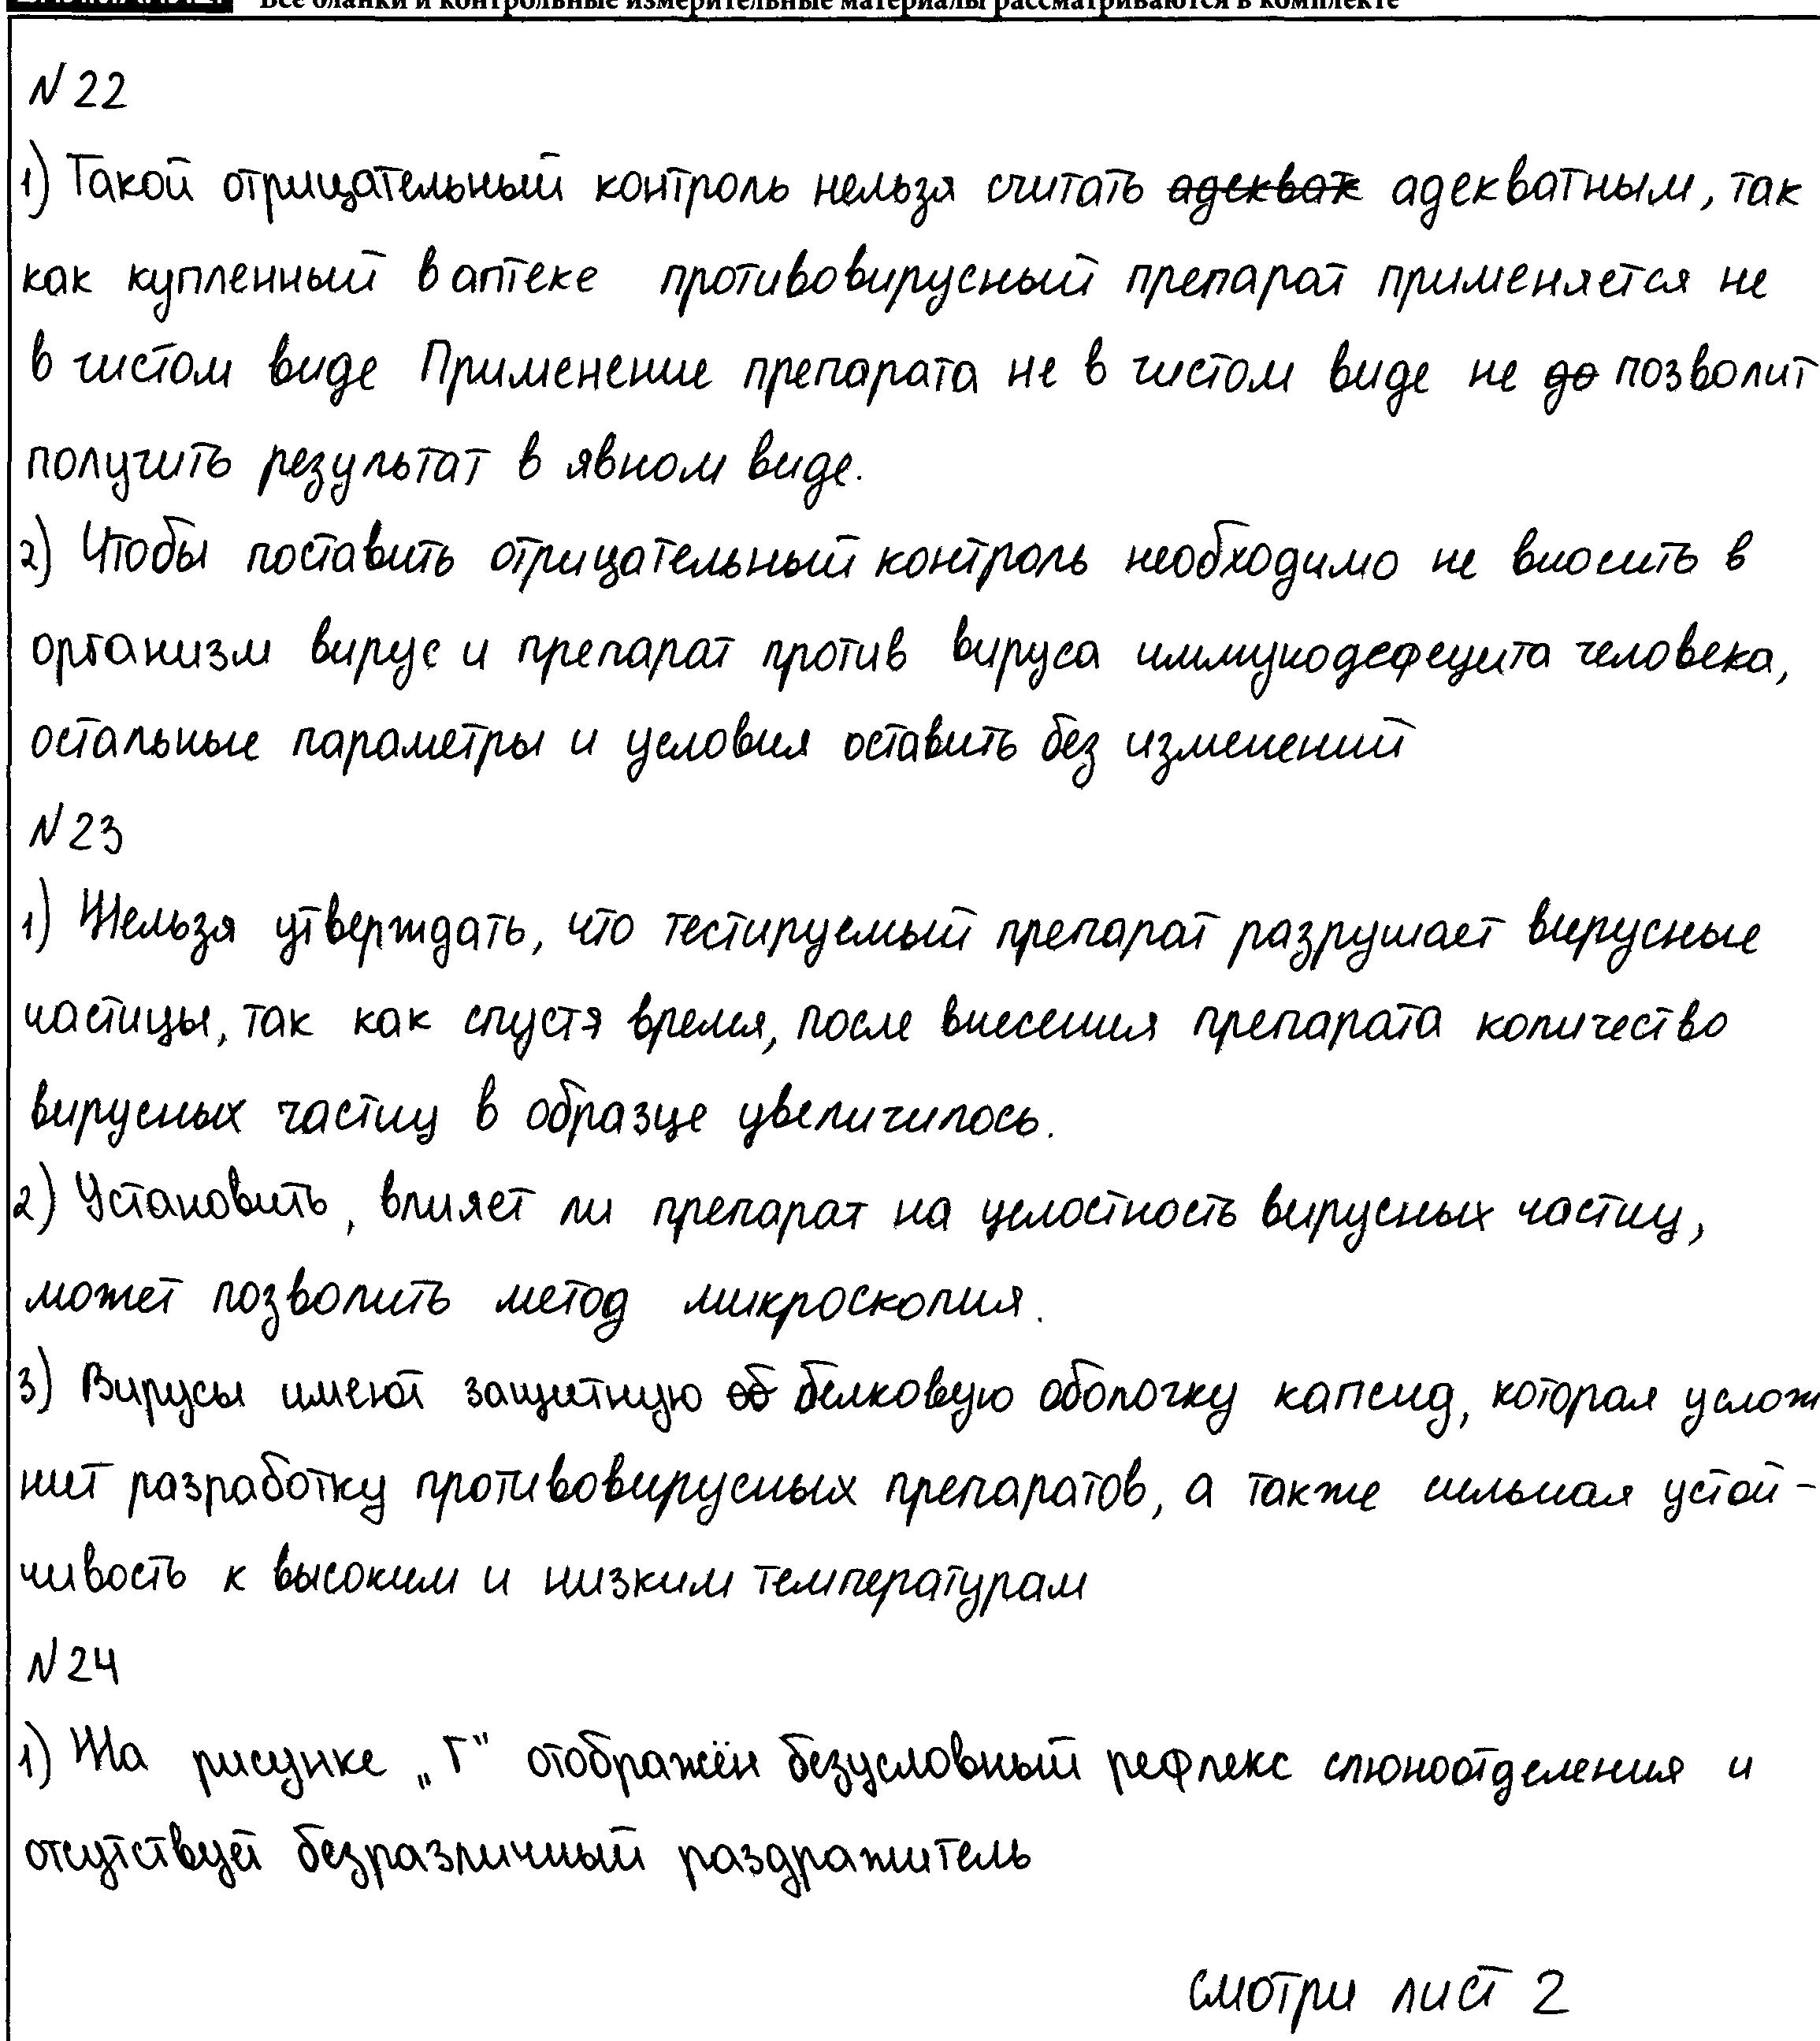 Все бланки и контрольные измерительные материалы рассматриваются в комплекте
N 22
1) Такой отрицательный контроль нельзя считать адекват адекватным, так
как купленный в аптеке противовирусный препарат применяется не
в чистом виде Применение препарата не в чистом виде не до позволит
получить результат в явном виде.
2) Чтобы поставить отрицательный контроль необходимо не вносить в
организм вирус и препарат против вируса иммунодефецита человека,
остальные параметры и условия оставить без изменений
N 23
1) Нельзя утверждать, что тестируемый препарат разрушает вирусные
частицы, так как спустя время, после внесения препарата количество
вирусных частиц в образце увеличилось.
2) Установить, влияет ли препарат на целостность вирусных частиц,
может позволить метод микроскопия.
3) Вирусы имеют защитную об белковую оболочку капсид, которая услож
нит разработку противовирусных препаратов, а также сильная устой-
чивость к высоким и низким температурам
N 24
1) На рисунке „Г" отображён безусловный рефлекс слюноотделения и
отсутствует безразличный раздражитель
смотри лист 2